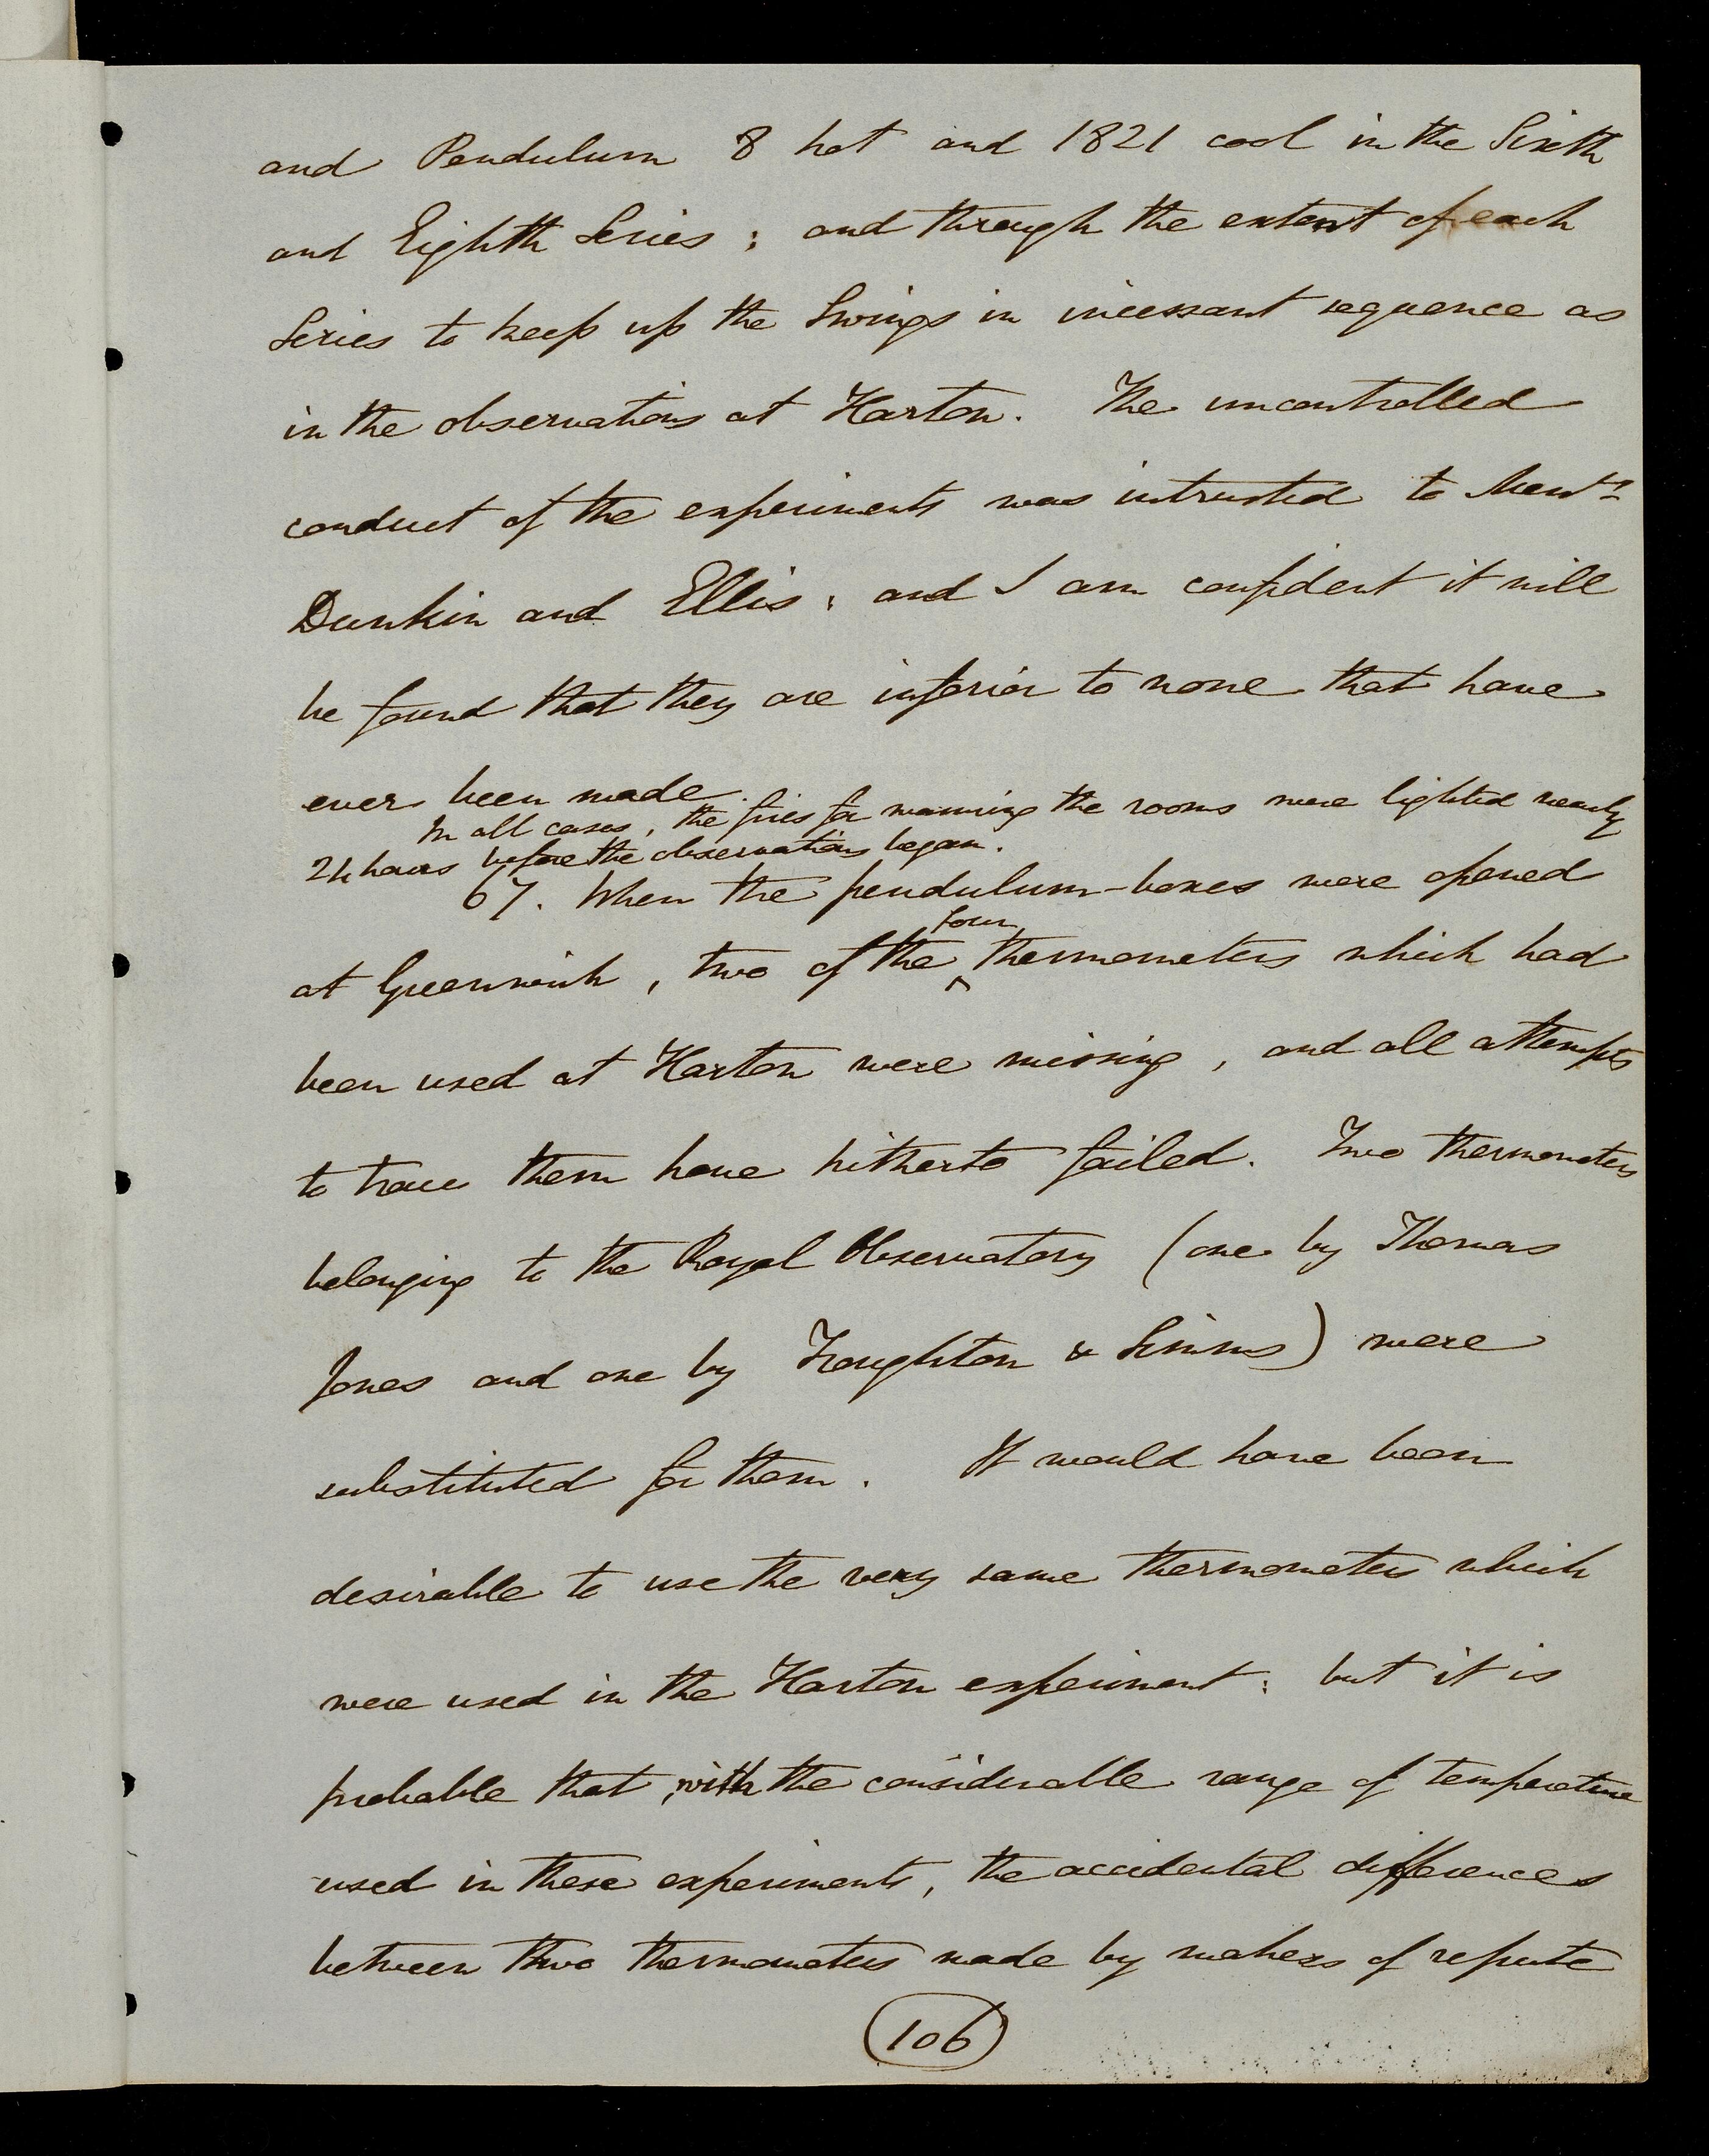 and Pendulum 8 hot and 1821 cool in the Sixth
and Eighth Series; and through the extent of each
Series to keep up the Swings in incessant sequence as
in the observations at Harton. The uncontrolled
conduct of the experiments was intrusted to Mess.rs
Dunkin and Ellis; and I am confident it will
be found that they are inferior to none that have
ever been made.
In all cases, the fires for warming the rooms were lighted nearly
24 hours before the observations began.
67. When the pendulum-boxes were opened
four
at Greenwich, two of the ^ thermometers which had
been used at Harton were missing, and all attempts
to trace them have hitherto failed. Two thermometers
belonging to the Royal Observatory (one by Thomas
Jones and one by Troughton & Simms) were
substituted for them. It would have been
desirable to use the very same thermometers which
were used in the Harton experiment: but it is
probable that, with the considerable range of temperature
used in these experiments, the accidental differences
between two thermometers made by makers of repute
106